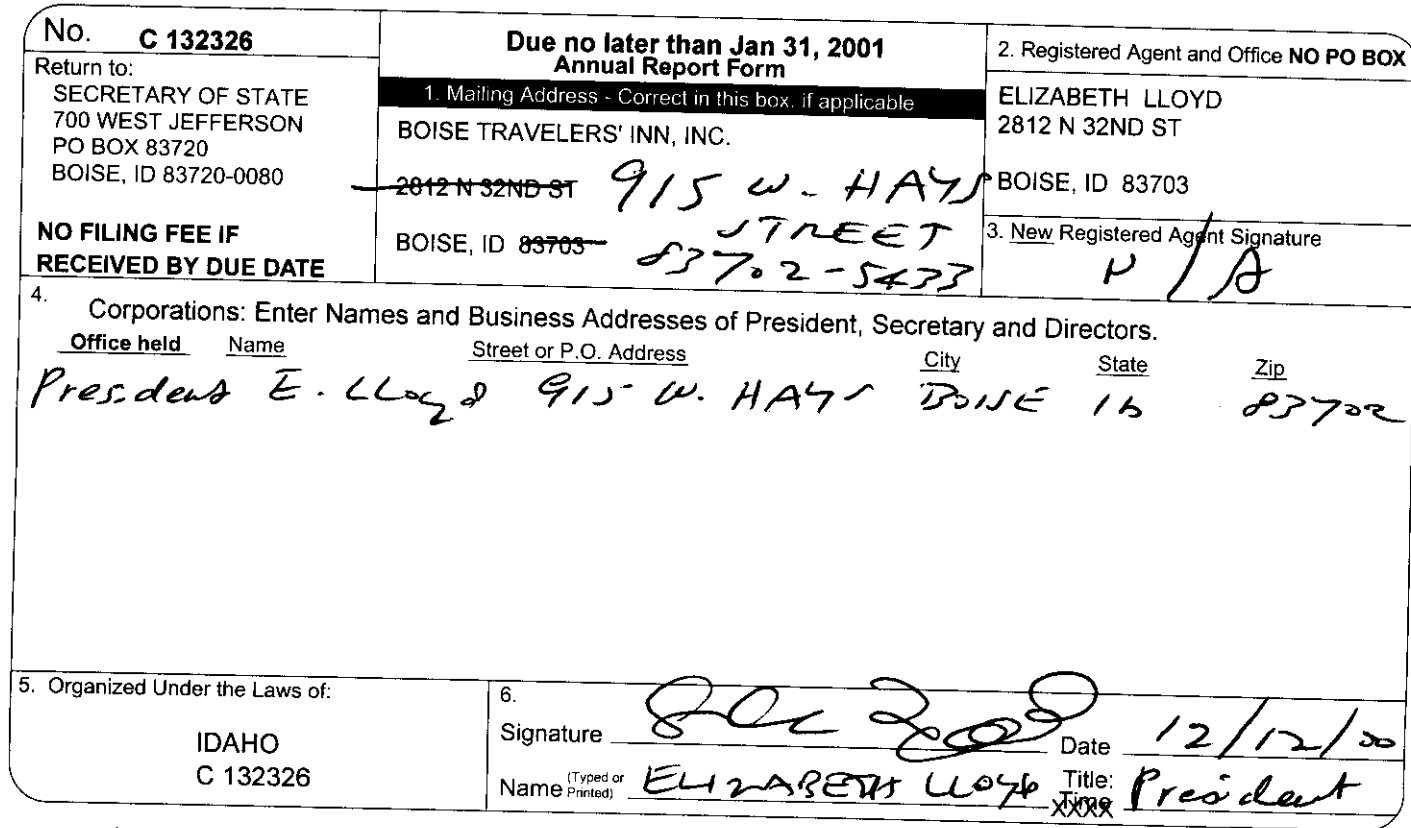 No. C 132326
Return to:
SECRETARY OF STATE
700 WEST JEFFERSON
PO BOX 83720
BOISE, ID 83720-0080
NO FILING FEE IF
RECEIVED BY DUE DATE
Due no later than Jan 31, 2001
Annual Report Form
1. Mailing Address - Correct in this box, if applicable
BOISE TRAVELERS' INN, INC.
2812 N 32ND ST 915 W. HAYS
STREET
BOISE, ID 83703 83702-5433
2. Registered Agent and Office NO PO BOX
ELIZABETH LLOYD
2812 N 32ND ST
BOISE, ID 83703
3. New Registered Agent Signature
N/A
4.
Corporations: Enter Names and Business Addresses of President, Secretary and Directors.
Office held Name Street or P.O. Address City State Zip
President E. LLoyd 915 W. HAYS BOISE ID 83702
5. Organized Under the Laws of:
IDAHO
C 132326
6.
Signature Date 12/12/00
Name (Typed or Printed) ELIZABETH LLOYD Title: President
XXXX